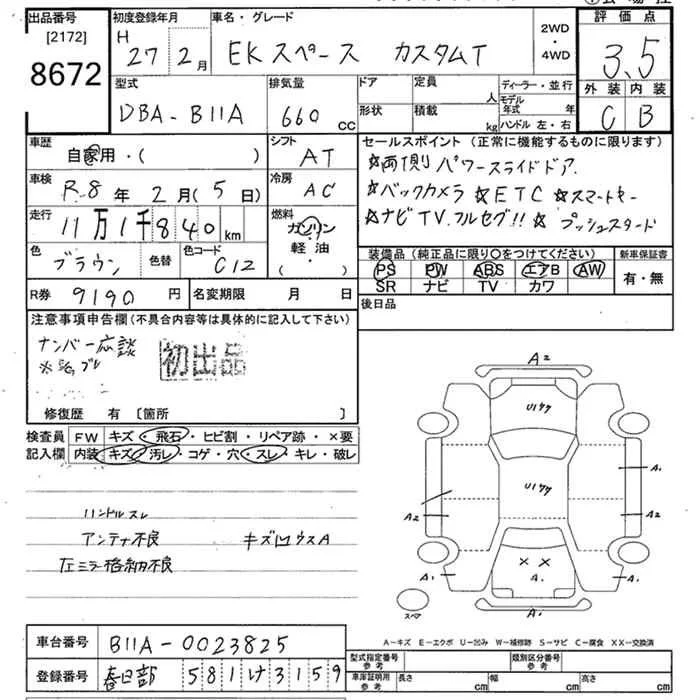 出品番号 [2172] 8672
初度登録年月 H 27年 2月
車名・グレード EKスペース カスタムT
2WD・4WD
評価点 3.5
外装 C 内装 B
型式 DBA-B11A
排気量 660 cc
ドア 形状
定員 人 積載 kg
ディーラー・並行
モデル年式 年
ハンドル 左・右
車歴 自家用・( )
シフト AT
車検 R.8年 2月(5日)
冷房 AC
走行 11万1千840km
燃料 ガソリン 軽油 ・( )
色 ブラウン 色替 色コード C12
R券 9190円 名変期限 月 日
セールスポイント(正常に機能するものに限ります)
☆両側パワースライドドア
☆バックカメラ ☆ETC ☆スマートキー
☆ナビTVフルセグ!! ☆プッシュスタート
装備品(純正品に限り○をつけてください) 新車保証書
PS PW ABS エアB AW
SR ナビ TV カワ
有・無
後日品
注意事項申告欄(不具合内容等は具体的に記入して下さい)
ナンバー応談
初出品
修復歴 有 〔箇所 〕
検査員記入欄
FW キズ・飛石・ヒビ割・リペア跡・×要
内装 キズ・汚レ・コゲ・穴・スレ・キレ・破レ
ハンドルスレ
アンテナ不良 キズ凹ウスA
左ミラー格納不良
A2
U1ケケ
U1ケケ
A1
A2
A2
××
A1
A1
A1
A1
スペア
A-キズ E-エクボ U-凹み W-補修跡 S-サビ C-腐食 XX-交換済
車台番号 B11A-0023825
登録番号 春日部 581け3159
型式指定番号 参考
類別区分番号 参考
車庫証明用 参考 長さ cm 幅 cm 高さ cm